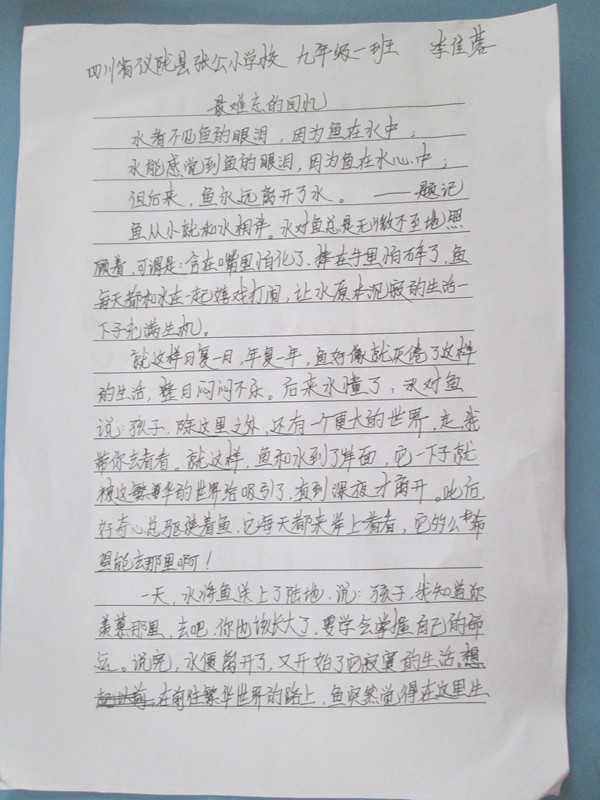 四川省仪陇县张公小学校 九年级一班 李佳蓉
最难忘的回忆
水看不见鱼的眼泪，因为鱼在水中；
水能感觉到鱼的眼泪，因为鱼在水心中；
但后来，鱼永远离开了水。——题记
鱼从小就和水相伴。水对鱼总是无微不至地照
顾着，可谓是：含在嘴里怕化了，捧在手里怕碎了，鱼
每天都和水在一起嬉戏打闹，让水原本沉寂的生活一
下子充满生机。
就这样日复一日，年复一年，鱼好像就厌倦了这样
的生活，整日闷闷不乐。后来水懂了，水对鱼
说：孩子，除这里之外，还有一个更大的世界，走，我
带你去看看。就这样，鱼和水到了岸面，它一下子就
被这繁华的世界给吸引了，直到深夜才离开。此后，
好奇心总驱使着鱼，它每天都来岸上看看，它多么希
望能去那里啊！
一天，水将鱼送上了陆地，说：孩子，我知道你
羡慕那里，去吧，你也该长大了，要学会掌握自己的命
运。说完，水便离开了，又开始了它寂寞的生活。想
在前往繁华世界的路上，鱼突然觉得在这里生